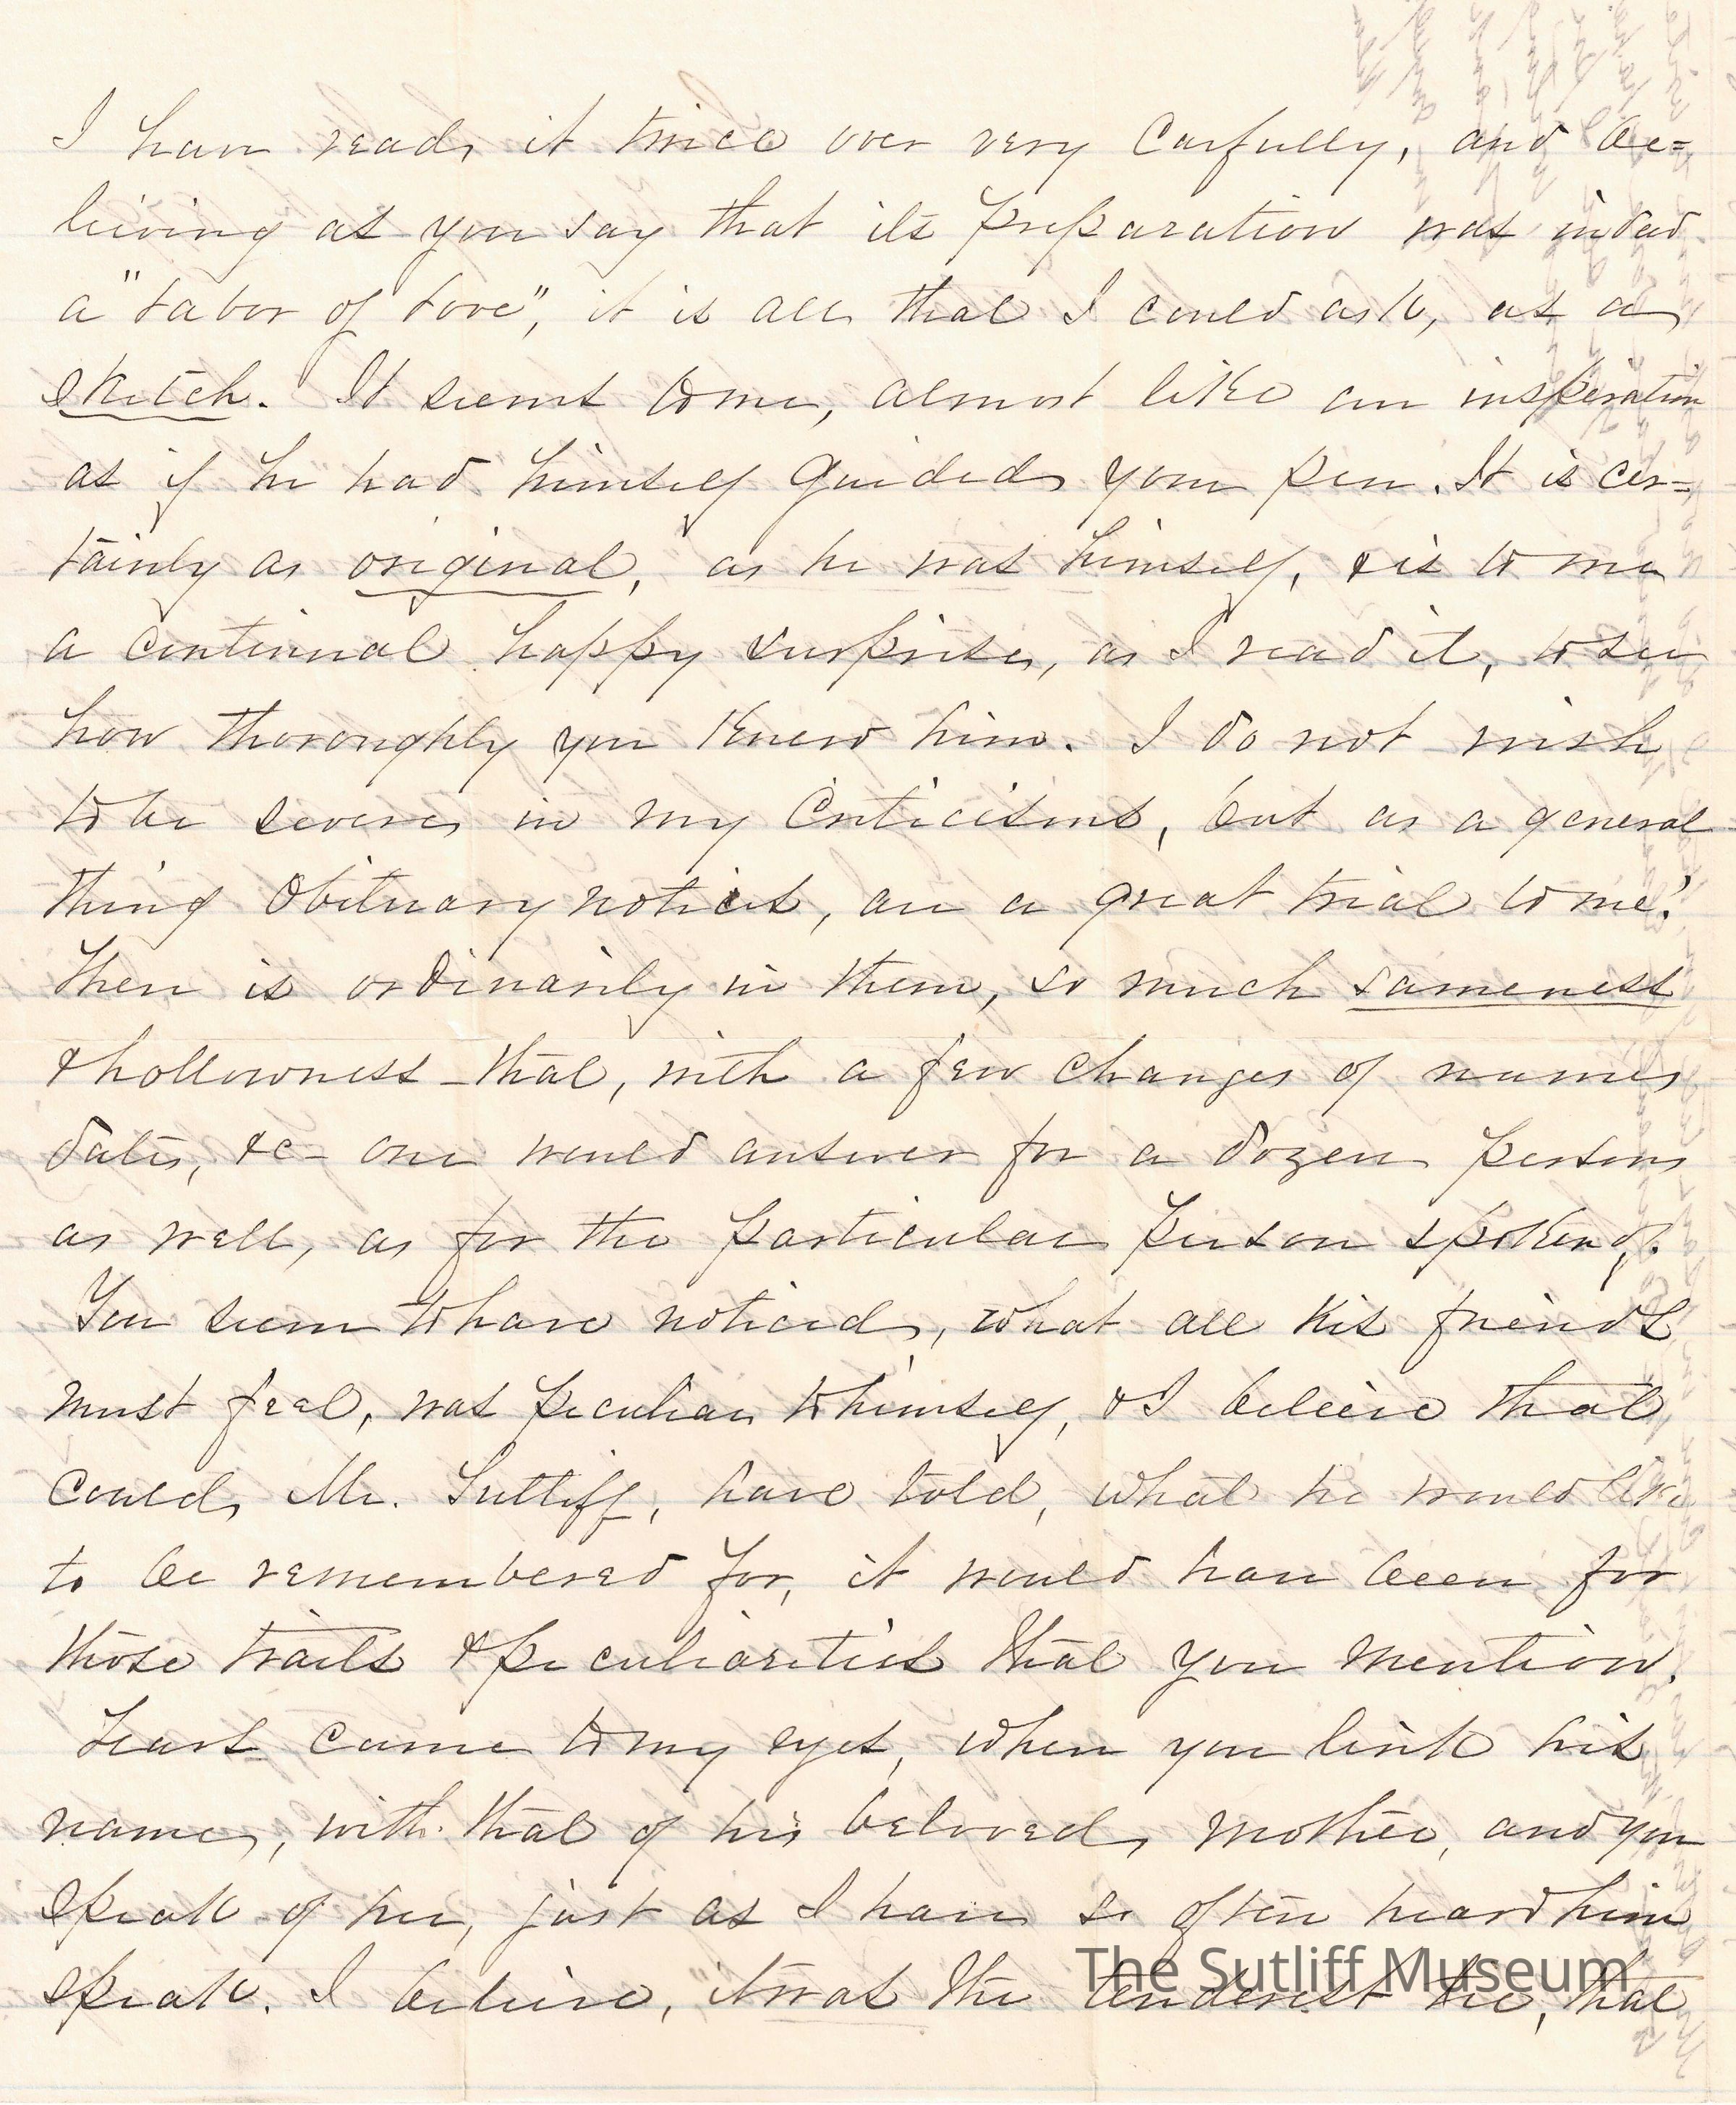 I have read it twice over very Carfully, and be=
lieving as you say that its preparation was indeed
a "Labor of Love", it is all that I could ask, as a
Sketch. It seems to me, almost like an inspiration
as if he had himself guided your pen. It is cer=
tainly as original, as he was himself, & is to me
a continual happy surprise, as I read it, to see
how thoroughly you knew him. I do not wish
to be severe in my Criticisms, but as a general
thing Obituary notices, are a great trial to me!
There is ordinarily in them, so much sameness
& hollowness - that, with a few changes of names
dates, &c - one would answer for a dozen persons
as well, as for the particular person spoken of.
You seem to have noticed, what all his friends
must feel, was peculiar to himself, & I believe that
could Mr. Sutliff, have told, what he would like
to be remembered for, it would have been for
those traits & peculiarities that you mention.
Tears came to my eyes, when you link his
name, with that of his beloved mother, and you
speak of her, just as I have so often heard him
speak. I believe, it was the tenderest tie, that
The Sutliff Museum